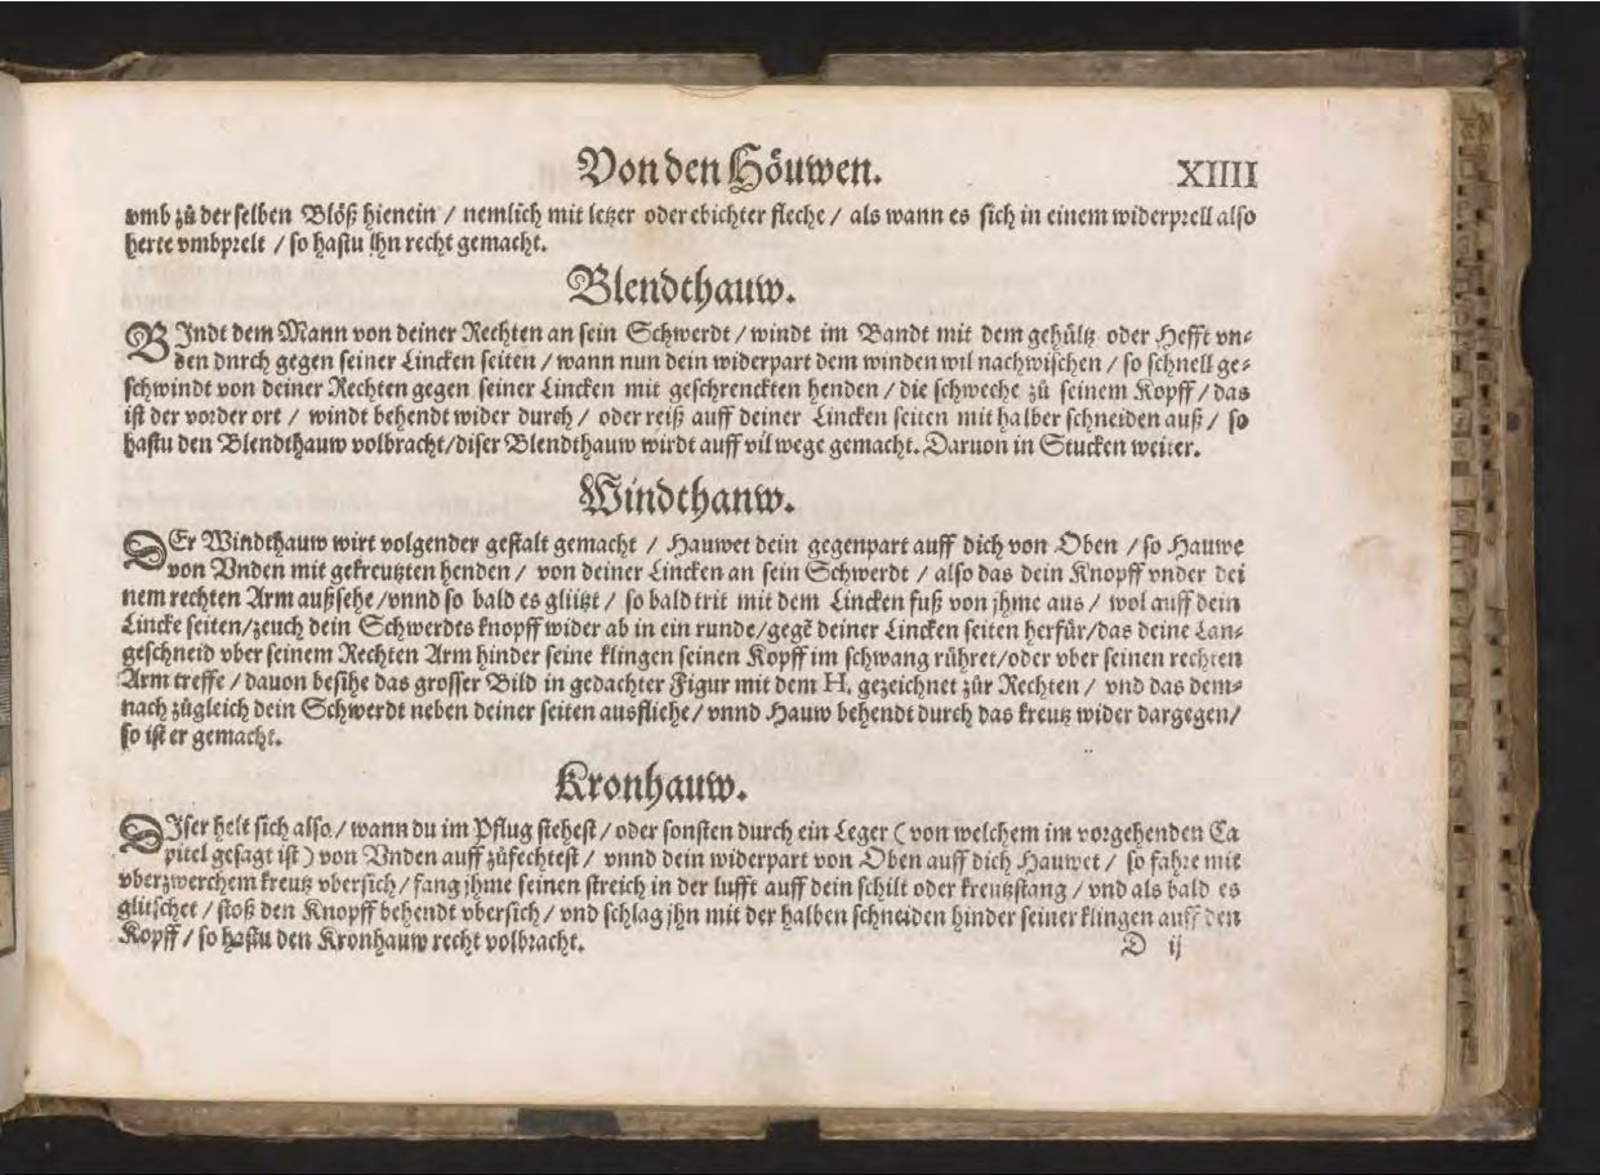 Von den Höuwen.
XIIII
vmb zů derselben Blöß hienein / nemlich mit letzer oder ebichter fleche / als wann es sich in einem widerprell also
herte vmbprelt / so hastu ihn recht gemacht.
Blendthauw.
BIndt dem Mann von deiner Rechten an sein Schwerdt / windt im Bandt mit dem gehültz oder Hefft vn⸗
den dnrch gegen seiner Lincken seiten / wann nun dein widerpart dem winden wil nachwischen / so schnell ge⸗
schwindt von deiner Rechten gegen seiner Lincken mit geschrenckten henden / die schweche zů seinem Kopff / das
ist der vorder ort / windt behendt wider durch / oder reiß auff deiner Lincken seiten mit halber schneiden auß / so
hastu den Blendthauw volbracht/diser Blendthauw wirdt auff vil wege gemacht. Daruon in Stucken weiter.
Windthanw.
DEr Windthauw wirt volgender gestalt gemacht / Hauwet dein gegenpart auff dich von Oben / so Hauwe
von Vnden mit gekreutzten henden / von deiner Lincken an sein Schwerdt / also das dein Knopff vnder dei
nem rechten Arm außsehe/vnnd so bald es glützt / so bald trit mit dem Lincken fuß von jhme aus / wol auff dein
Lincke seiten/zeuch dein Schwerdts knopff wider ab in ein runde/gegē deiner Lincken seiten herfür/das deine Lan⸗
geschneid vber seinem Rechten Arm hinder seine klingen seinen Kopff im schwang rühret/oder vber seinen rechten
Arm treffe / dauon besihe das grosser Bild in gedachter Figur mit dem H. gezeichnet zůr Rechten / vnd das dem⸗
nach zůgleich dein Schwerdt neben deiner seiten ausfliehe/ vnnd Hauw behendt durch das kreutz wider dargegen/
so ist er gemacht.
Kronhauw.
DIser helt sich also / wann du im Pflug stehest / oder sonsten durch ein Leger (von welchem im vorgehenden Ca
pitel gesagt ist) von Vnden auff zůfechtest / vnnd dein widerpart von Oben auff dich Hauwet / so fahre mit
vberzwerchem kreutz vbersich / fang jhme seinen streich in der lufft auff dein schilt oder kreutzstang / vnd als bald es
glitschet / stoß den Knopff behendt vbersich / vnd schlag jhn mit der halben schneiden hinder seiner klingen auff den
Kopff / so hastu den Kronhauw recht volbracht.
D ij